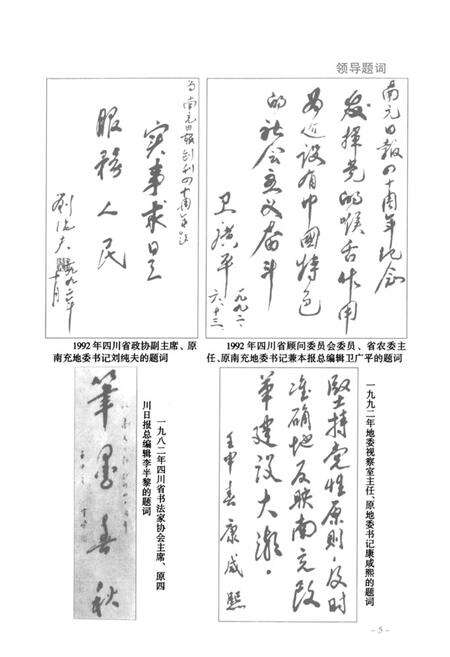 领导题词
南充日报四十周年纪念
发挥党的喉舌作用
为建设有中国特色
的社会主义奋斗
卫广平
一九九二.
六.十三.
为南充日报创刊四十周年题
实事求是
服务人民
刘纯夫
一九九二年
十月
1992年四川省顾问委员会委员、省农委主
任、原南充地委书记兼本报总编辑卫广平的题词
1992年四川省政协副主席、原
南充地委书记刘纯夫的题词
一九九二年地委视察室主任、原地委书记康咸熙的题词
坚持党性原则,及时
准确地反映南充改
革建设大潮。
壬申春 康咸熙
一九八二年四川省书法家协会主席、原四
川日报总编辑李半黎的题词
笔墨春秋
- 5 -